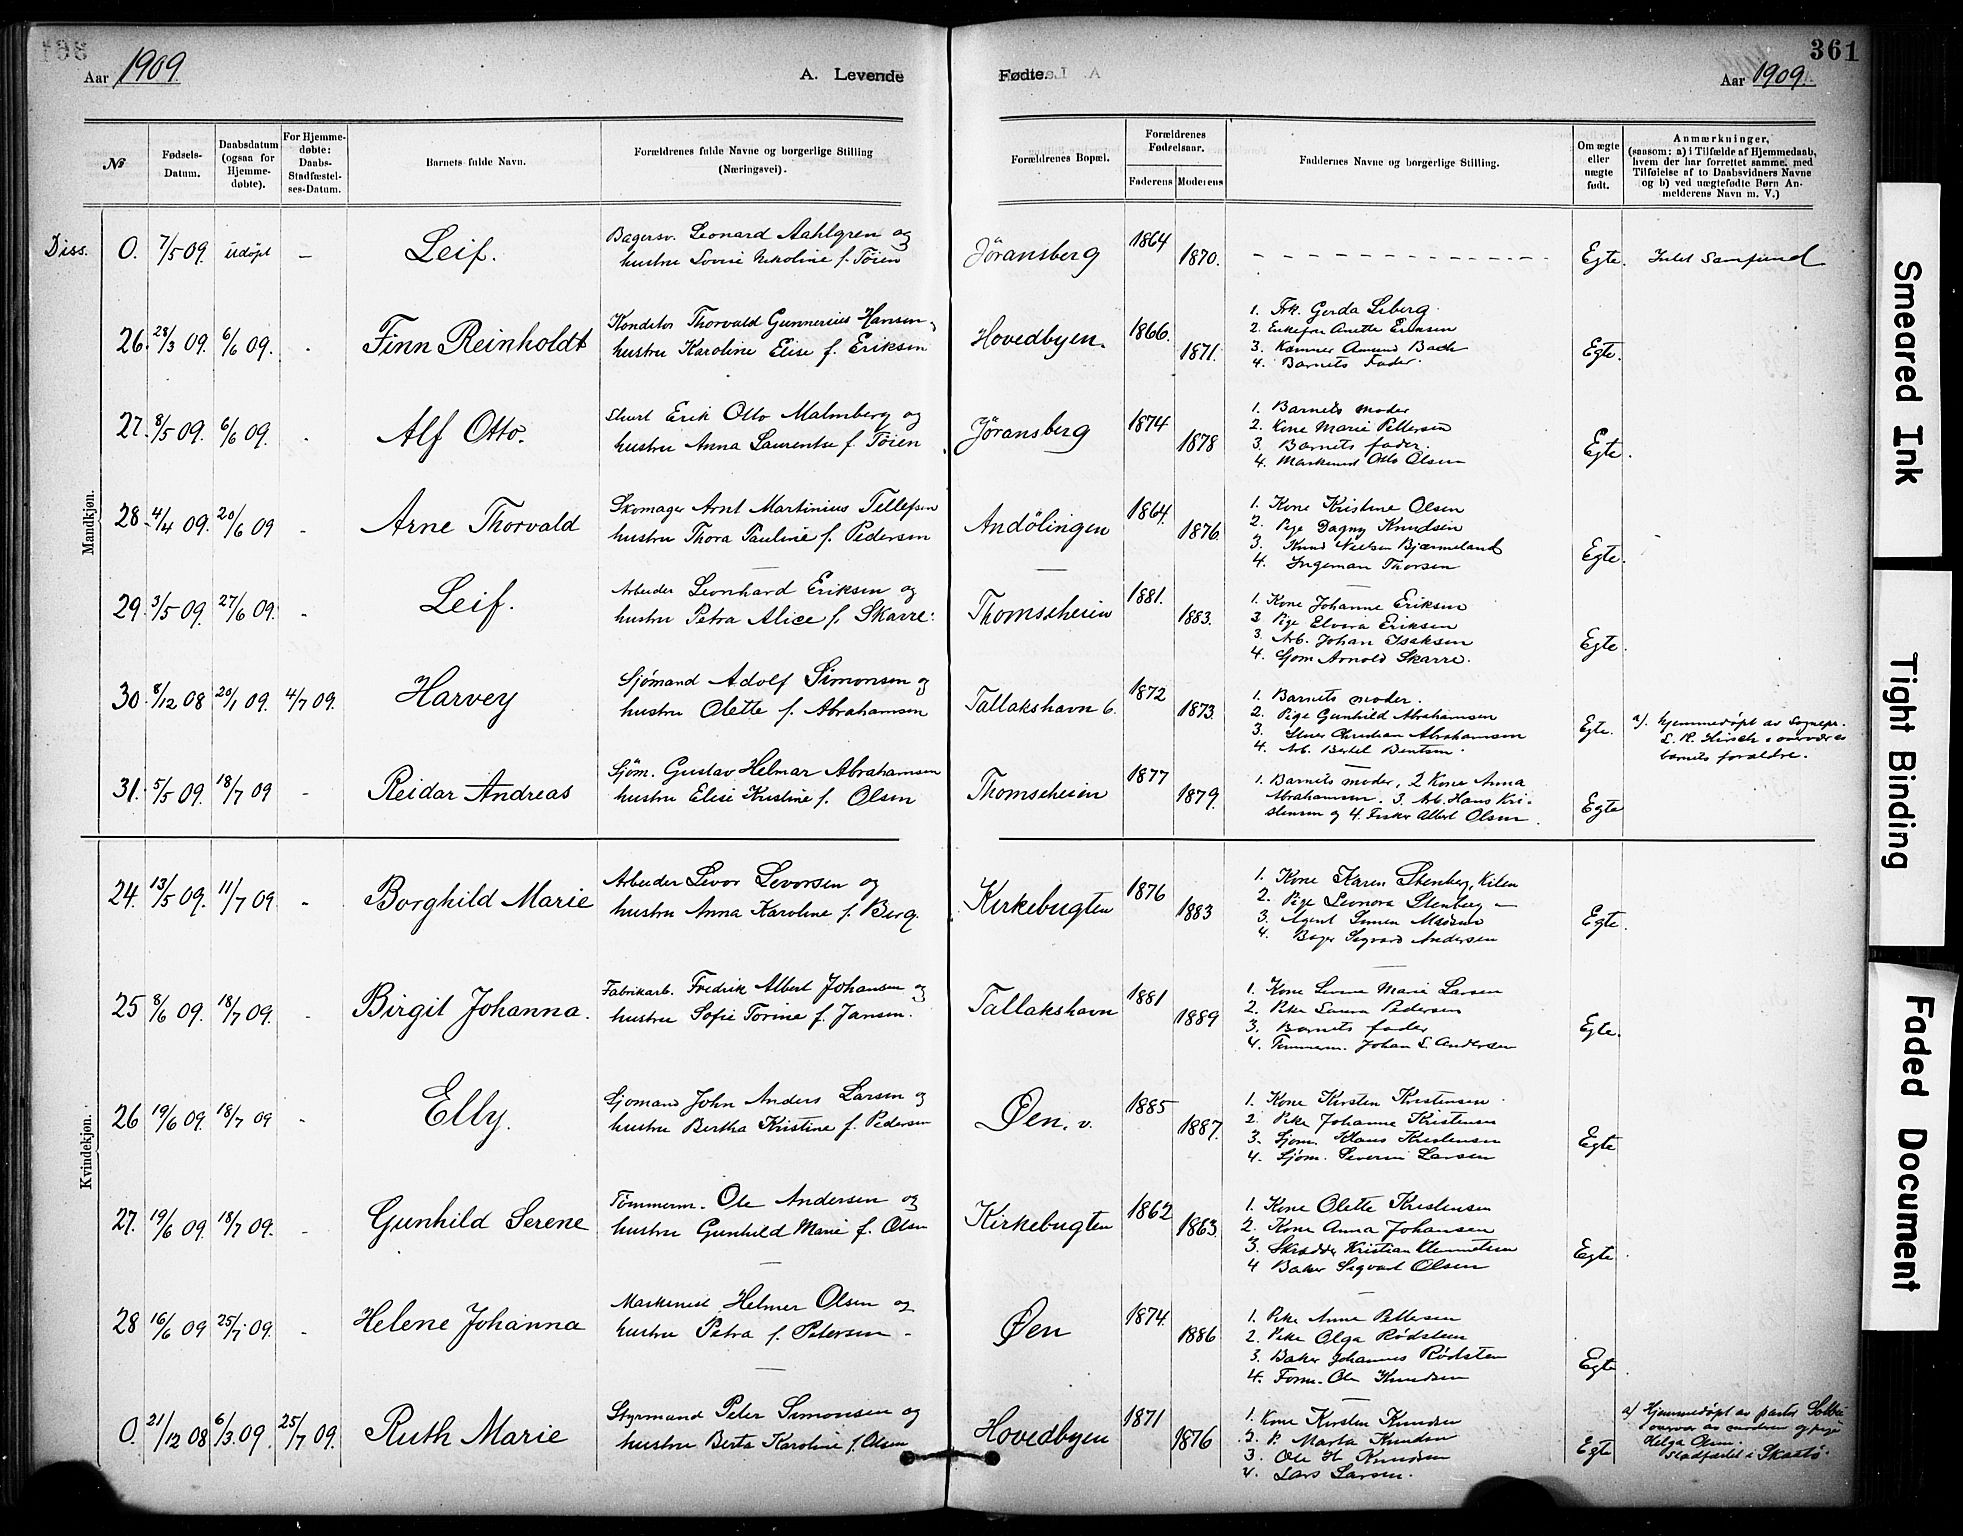 361
Aar 1909.
A. Levende
Fødte.
Aar 1909.
No
Fødsels-Datum.
Daabsdatum (ogsaa for Hjemme-døbte).
For Hjemme-døbte: Daabs-Stadfæstel-ses-Datum.
Barnets fulde Navn.
Forældrenes fulde Navne og borgerlige Stilling (Næringsvei).
Forældrenes Bopæl.
Forældrenes Fødselsaar.
Faderens
Moderens
Faddernes Navne og borgerlige Stilling.
Om ægte eller uægte født.
Anmærkninger,
(saasom: a) i Tilfælde af Hjemmedaab, hvem der har forrettet samme, med Tilføielse af to Daabsvidners Navne og b) ved uægtefødte Børn An-melderens Navn m. V.)
Mandkjøn.
Diss. 0. 7/5 09. udøpt – Leif.
Bagersv. Leonard Aahlgren og
hustru Lovise Nikoline f. Töien
Jöransberg 1864 1870. Egte. Intet Samfund
26. 28/3 09. 6/6 09. Finn Reinholdt
Konditor Thorvald Gunnerius Hansen
hustru Karoline Elise f. Eriksen
Hovedbyen. 1866. 1871.
1. Frk. Gerda Liberg.
2. Enkefru Anette Eriksen
3. Kæmner Amund Bach
4. Barnets Fader.
Egte.
27. 8/5 09. 6/6 09. Alf Otto.
Erik Otto Malmberg og
hustru Anna Laurentse f. Töien
Jöransberg 1874 1878
1. Barnets moder
2. Kone Marie Pettersen
3. Barnets fader.
4. Maskinist Otto Olsen
Egte.
28. 4/4 09. 20/6 09 Arne Thorvald
Skomager Arnt Martinius Tellefsen
hustru Thora Pauline f. Pedersen
Andölingen 1864. 1876.
1. Kone Kristine Olsen
2. Pige Dagny Knudsen
3. Knud Nielsen Bjærmeland
4. Ingeman Thorsen
Egte.
29. 3/5 09. 27/6 09. Leif.
Arbeider Leonhard Eriksen og
hustru Petra Alice f. Skarre.
Thomesheien 1881. 1883.
1. Kone Johanne Eriksen
2. Pige Elvora Eriksen
3. Arb. Johan Isaksen
4. Sjøm Arnold Skarre.
Egte.
30. 8/12 08 20/1 09. 4/7 09. Harvey
Sjømand Adolf Simonsen og
hustru Olette f. Abrahamsen
Tallakshavn 6. 1872 1873.
1. Barnets moder.
2. Pige Gunhild Abrahamsen
3. Christian Abrahamsen
4. Arb. Bertel Bentsen.
Egte.
a). Hjemmedøpt av Sognepr.
L. R. Hirsch i overvær av
barnets forældre.
31. 5/5 09. 18/7 09 Reidar Andreas
Sjøm. Gustav Helmar Abrahamsen
hustru Elise Kristine f. Olsen
Thomesheien 1877 1879.
1. Barnets moder, 2 Kone Anna
Abrahamsen. 3. Arb. Hans Kri-
stensen og 4. Fisker Albert Olsen.
Egte
Kvindekjøn.
24. 13/5 09. 11/7 09. Borghild Marie
Arbeider Levor Levorsen og
hustru Anna Karoline f. Berg.
Kirkebugten 1876 1883
1. Kone Karen Stenberg, Kilen
2. Pige Leonora Stenberg –
3. Agent Simen Madsen
4. Bager Sigvard Andersen
Egte.
25 8/6 09. 18/7 09. Birgit Johanna.
Fabrikarb. Fredrik Albert Johansen og
hustru Sofie Torine f. Jansen.
Tallakshavn 1881 1889
1. Kone Marie Larsen
2. Pike Laura Pedersen
3. Barnets fader
4. Tømmerm. Johan S. Andersen
Egte.
26 19/6 09. 18/7 09 Elly.
Sjömand John Anders Larsen og
hustru Bertha Kristine f. Pedersen
Öen. v. 1885 1887.
1. Kone Kirsten Kristensen.
2. Pike Johanne Kristensen
3. Sjøm. Klaus Kristensen
4. Sjøm. Severin Larsen
Egte
27. 19/6 09. 18/7 09. Gunhild Serene
Tömmerm. Ole Andersen og
hustru Gunhild Marie f. Olsen
Kirkebugten 1862 1863.
1. Kone Olette Kristensen
2. Kone Anna Johansen
3. Skrædder Kristian Klemmetsen
4 Baker Sigvart Olsen
Egte.
28 16/6 09 25/7 09. Helene Johanna
Maskinist Helmer Olsen og
hustru Petra f. Petersen –
Öen 1874. 1886
1. Pike Anne Pettersen
2. Pike Olga Rödsten
3. Baker Johannes Rödsten
4. Form. Ole Knudsen
Egte
0. 21/12 08 6/3 09. 25/7 09. Ruth Marie
Styrmand Peter Simonsen og
hustru Berta Karoline f. Olsen
Hovedbyen 1871 1876
1. Kone Kirsten Knudsen
2. P. Marta Knudsen
3. Ole H. Knudsen
4. Lars Larsen.
Egte
a) Hjemmedøpt av pastor
Helga Olsen.
Stadfæstet i Skaatö.
Smeared Ink
Tight Binding
Faded Document